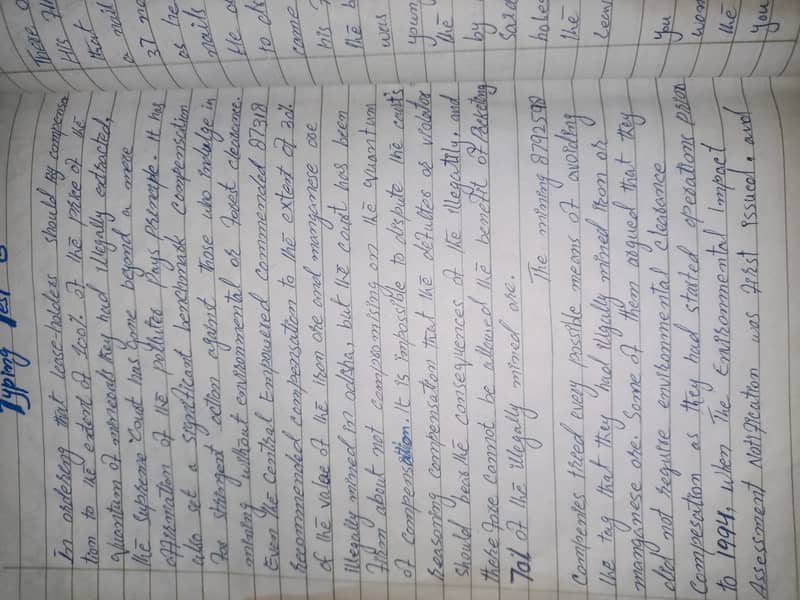 Typing Test
In ordering that lease-holders should pay compensa
tion to the extent of 100% of the price of the
quantum of minerals they had illegally extracted,
the supreme court has gone beyond a mere
affirmation of the polluter pays principle. It has
also set a significant benchmark compensation
for stringent action against those who indulge in
mining without environmental or forest clearance.
Even the Central Empowered commended 87318
Recommended compensation to the extent of 30%
of the value of the iron ore and manganese ore
illegally mined in odisha, but the court has been
firm about not compromising on the quantum
of compensation. It is impossible to dispute the court's
reasoning compensation that the defulter or violator
should bear the consequences of the illegatily, and
therefore cannot be allowed the benefit of Pocketing
70% of the illegally mined ore.
The mining 8792590
companies tried every possible means of avoiding
the tag that they had illegally mined iron or
manganese ore. Some of them argued that they
did not require environmental clearance
Compesation as they had started operations prior
to 1994, when The Environmental Impact
Assessment Notification was first issued, and
There
His
that
a
37
as he
nails
He
to
come
his
the
was
young
the
by
Said
holes
the
you
the
you